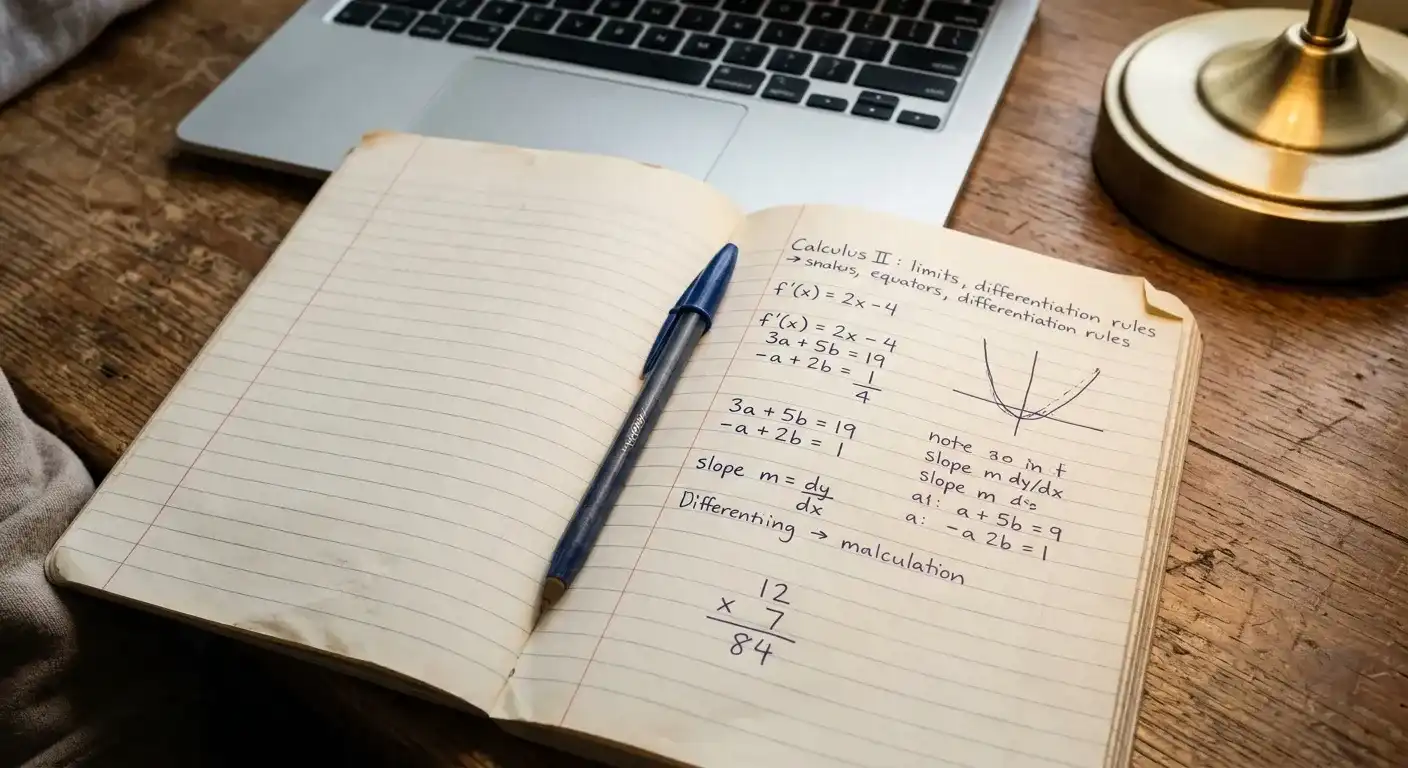 Calculus II : limits, differentiation rules
→ snakus, equators, differentiation rules
f'(x) = 2x - 4
f'(x) = 2x - 4
3a + 5b = 19
-a + 2b = 1
4
3a + 5b = 19
-a + 2b = 1
slope m = dy
dx
Differenting → malculation
note 30 in f
slope m dy/dx
slope m
a1: a + 5b = 9
a: -a 2b = 1
12
x 7
84